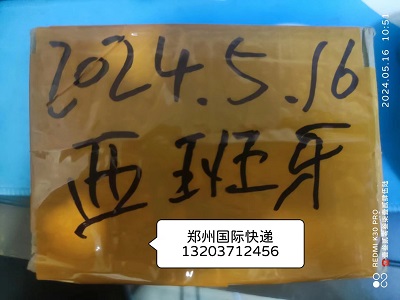 2024.5.16
西班牙
郑州国际快递
13203712456
2024.05.16 10:51
REDMI K30 PRO